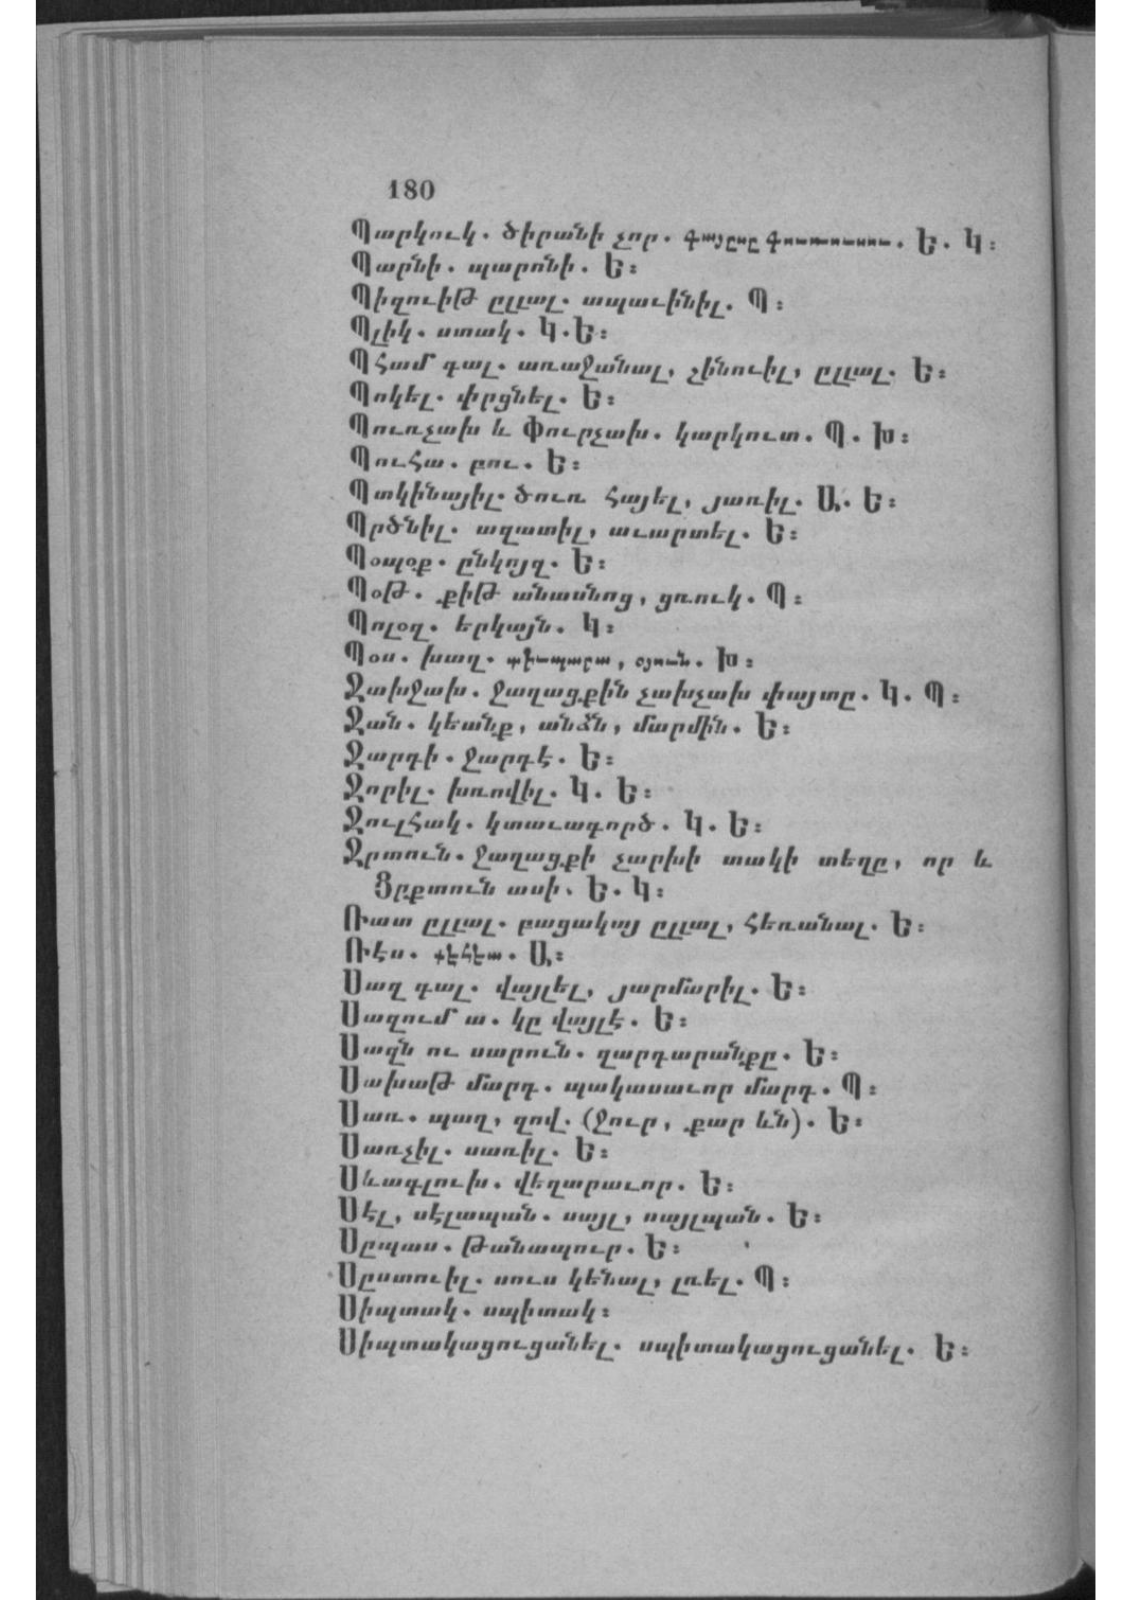 180
Պարկուկ. ծիրանի չոր. գայըսը գ. Ե. Կ:
Պարնի. պարոնի. Ե:
Պիզուիթ ըլլալ. ապաւինիլ. Պ:
Պլիկ. ստակ. Կ.Ե:
Պհամ գալ. առաջանալ, շինուիլ, ըլլալ. Ե:
Պոկել. փրցնել. Ե:
Պուռչախ և Փուրչախ. կարկուտ. Պ. Խ:
Պուհա. բու. Ե:
Պտկինայիլ. ծուռ հայել, յառիլ. Ա. Ե:
Պրծնիլ. ազատիլ, աւարտել. Ե:
Պօպօք. ընկոյզ. Ե:
Պօթ. քիթ անասնոց, ցռուկ. Պ:
Պոլօզ. երկայն. Կ:
Պօս. խաղ. օյուն. Խ:
Ջախջախ. ջաղացքին չախչախ փայտը. Կ. Պ:
Ջան. կեանք, անձն, մարմին. Ե:
Ջարդի. ջարդէ. Ե:
Ջորիլ. խռովիլ. Կ. Ե:
Ջուլհակ. կտաւագործ. Կ. Ե:
Ջրտուն. ջաղացքի չարխի տակի տեղը, որ և
Ցըքտուն ասի. Ե. Կ:
Ռատ ըլլալ. բացակայ ըլլալ, հեռանալ. Ե:
Ռէս. Ա:
Սաղ գալ. վայլել, յարմարիլ. Ե:
Սազում ա. կը վայլէ. Ե:
Սազն ու սարուն. զարդարանքը. Ե:
Սախաթ մարդ. պակասաւոր մարդ. Պ:
Սառ. պաղ, զով. (ջուր, քար ևն). Ե:
Սառչիլ. սառիլ. Ե:
Սևագլուխ. վեղարաւոր. Ե:
Սէլ, սէլապան. սայլ, սայլպան. Ե:
Սըպաս. թանապուր. Ե:
Սըստուիլ. սուս կենալ, լռել. Պ:
Սիպտակ. սպիտակ:
Սիպտակացուցանել. սպիտակացուցանել. Ե: